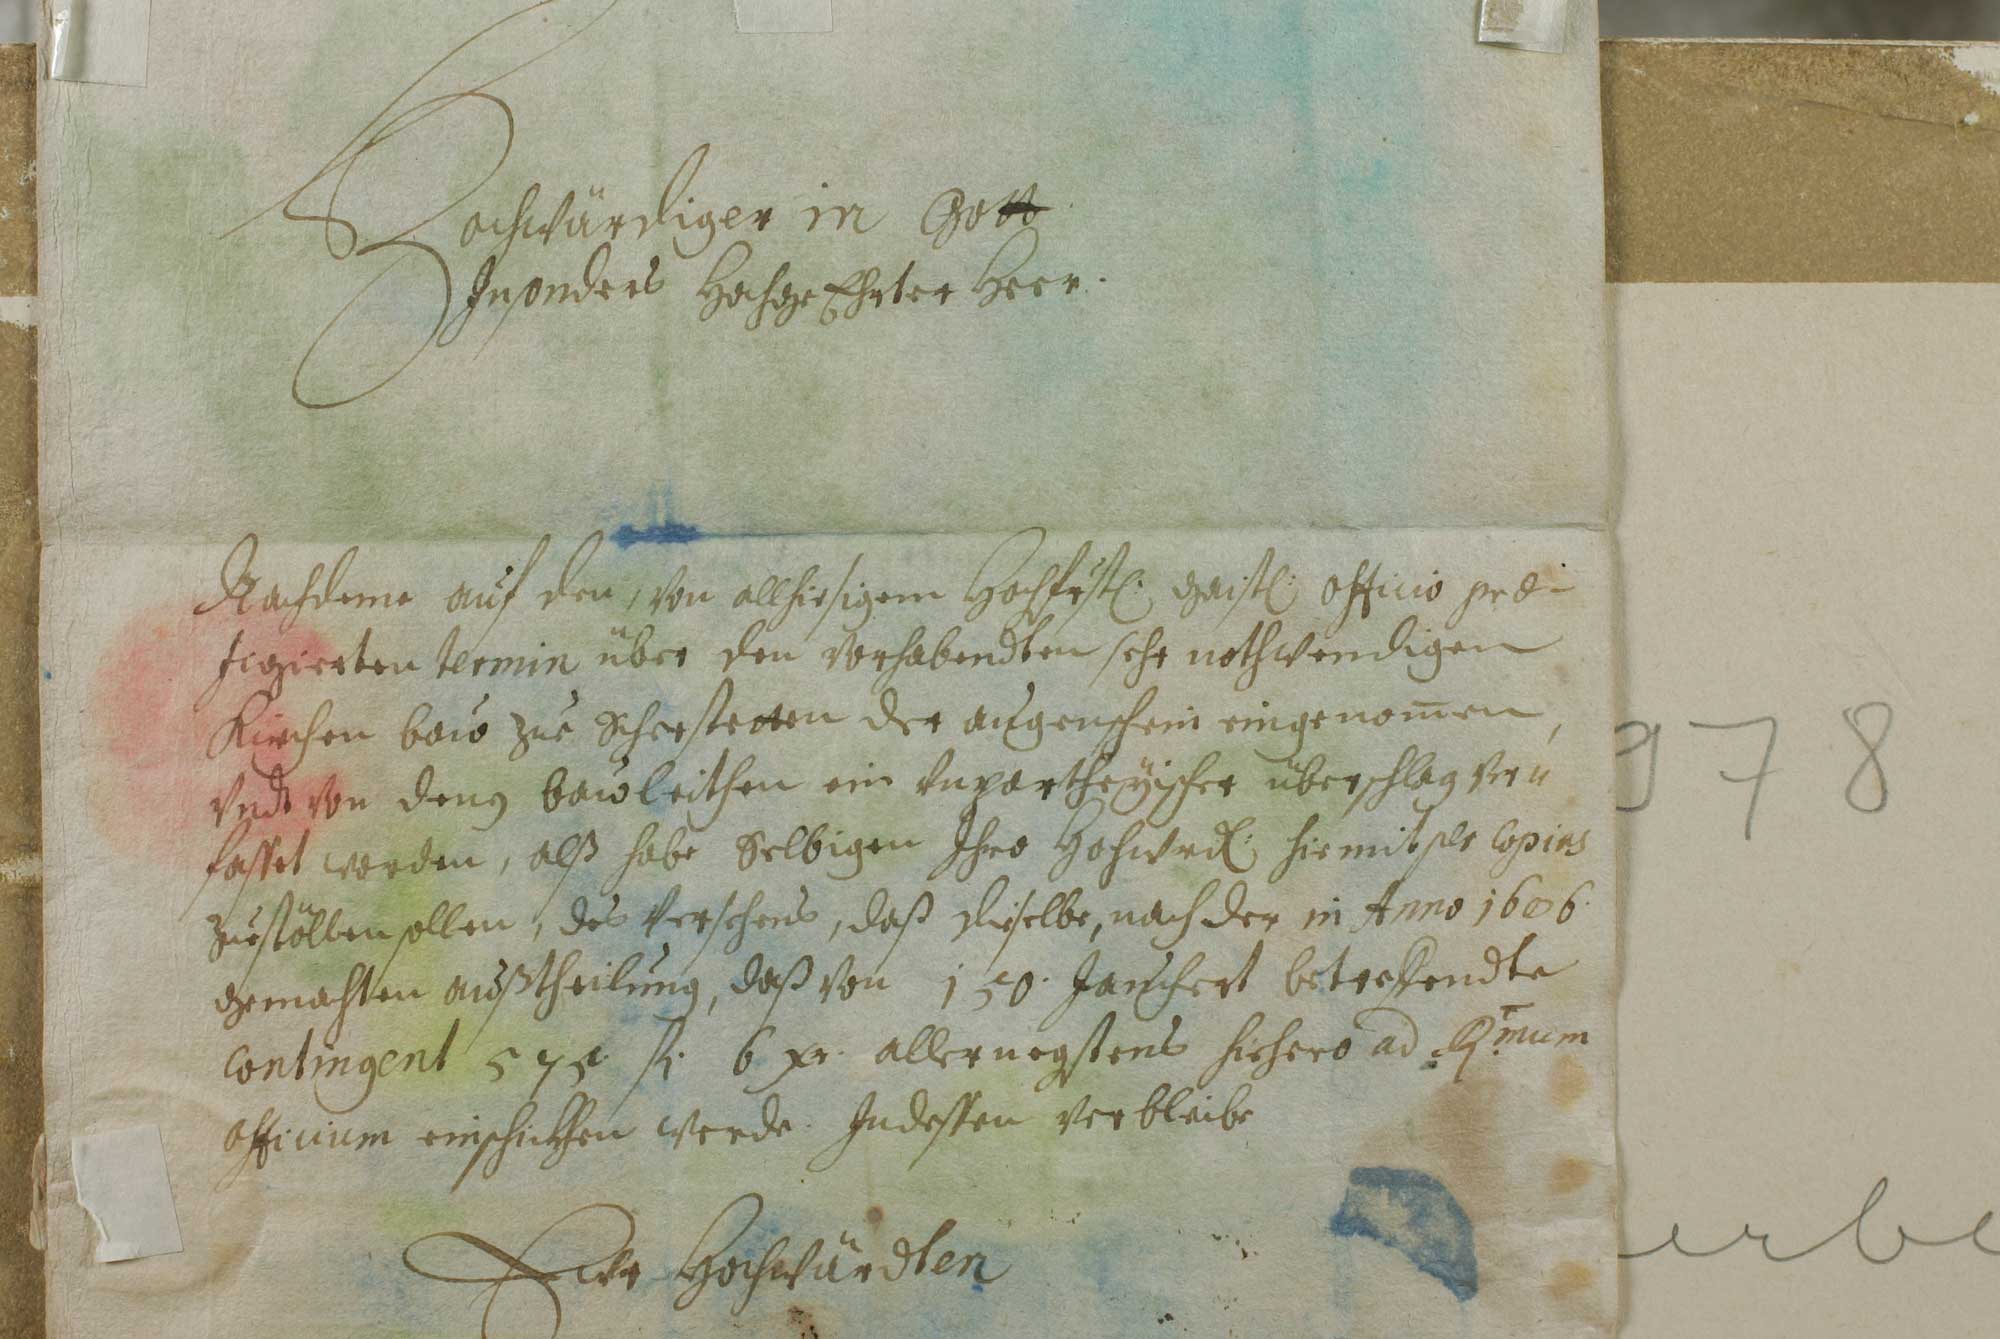 Hochwürdiger in Gott
Insonders HochgeEhrter Herr.
Nachdeme auf den, von allhiesigem Hochfrstl: geistl: Officio præ-
figierten termin über den vorhabendten sehr nothwendigen
Kirchen baw zue Scherstetten der augenschein eingenommen,
vndt von denen bawleithen ein vnpartheyischer überschlag ver-
fasset worden, alß habe Selbigen Ihro Hochwrd: hiemit per copias
zuestöllen sollen, des versehens, daß dieselbe, nach der in Anno 1606.
gemachten außtheilung, daß von 150. Jauchert betreffendte
contingent 575 fl. 6 xr. allernegstens hiehero ad R.mum
Officium einschickhen werde. Indessen verbleibe
Ewr Hochwürdten
978
erbe